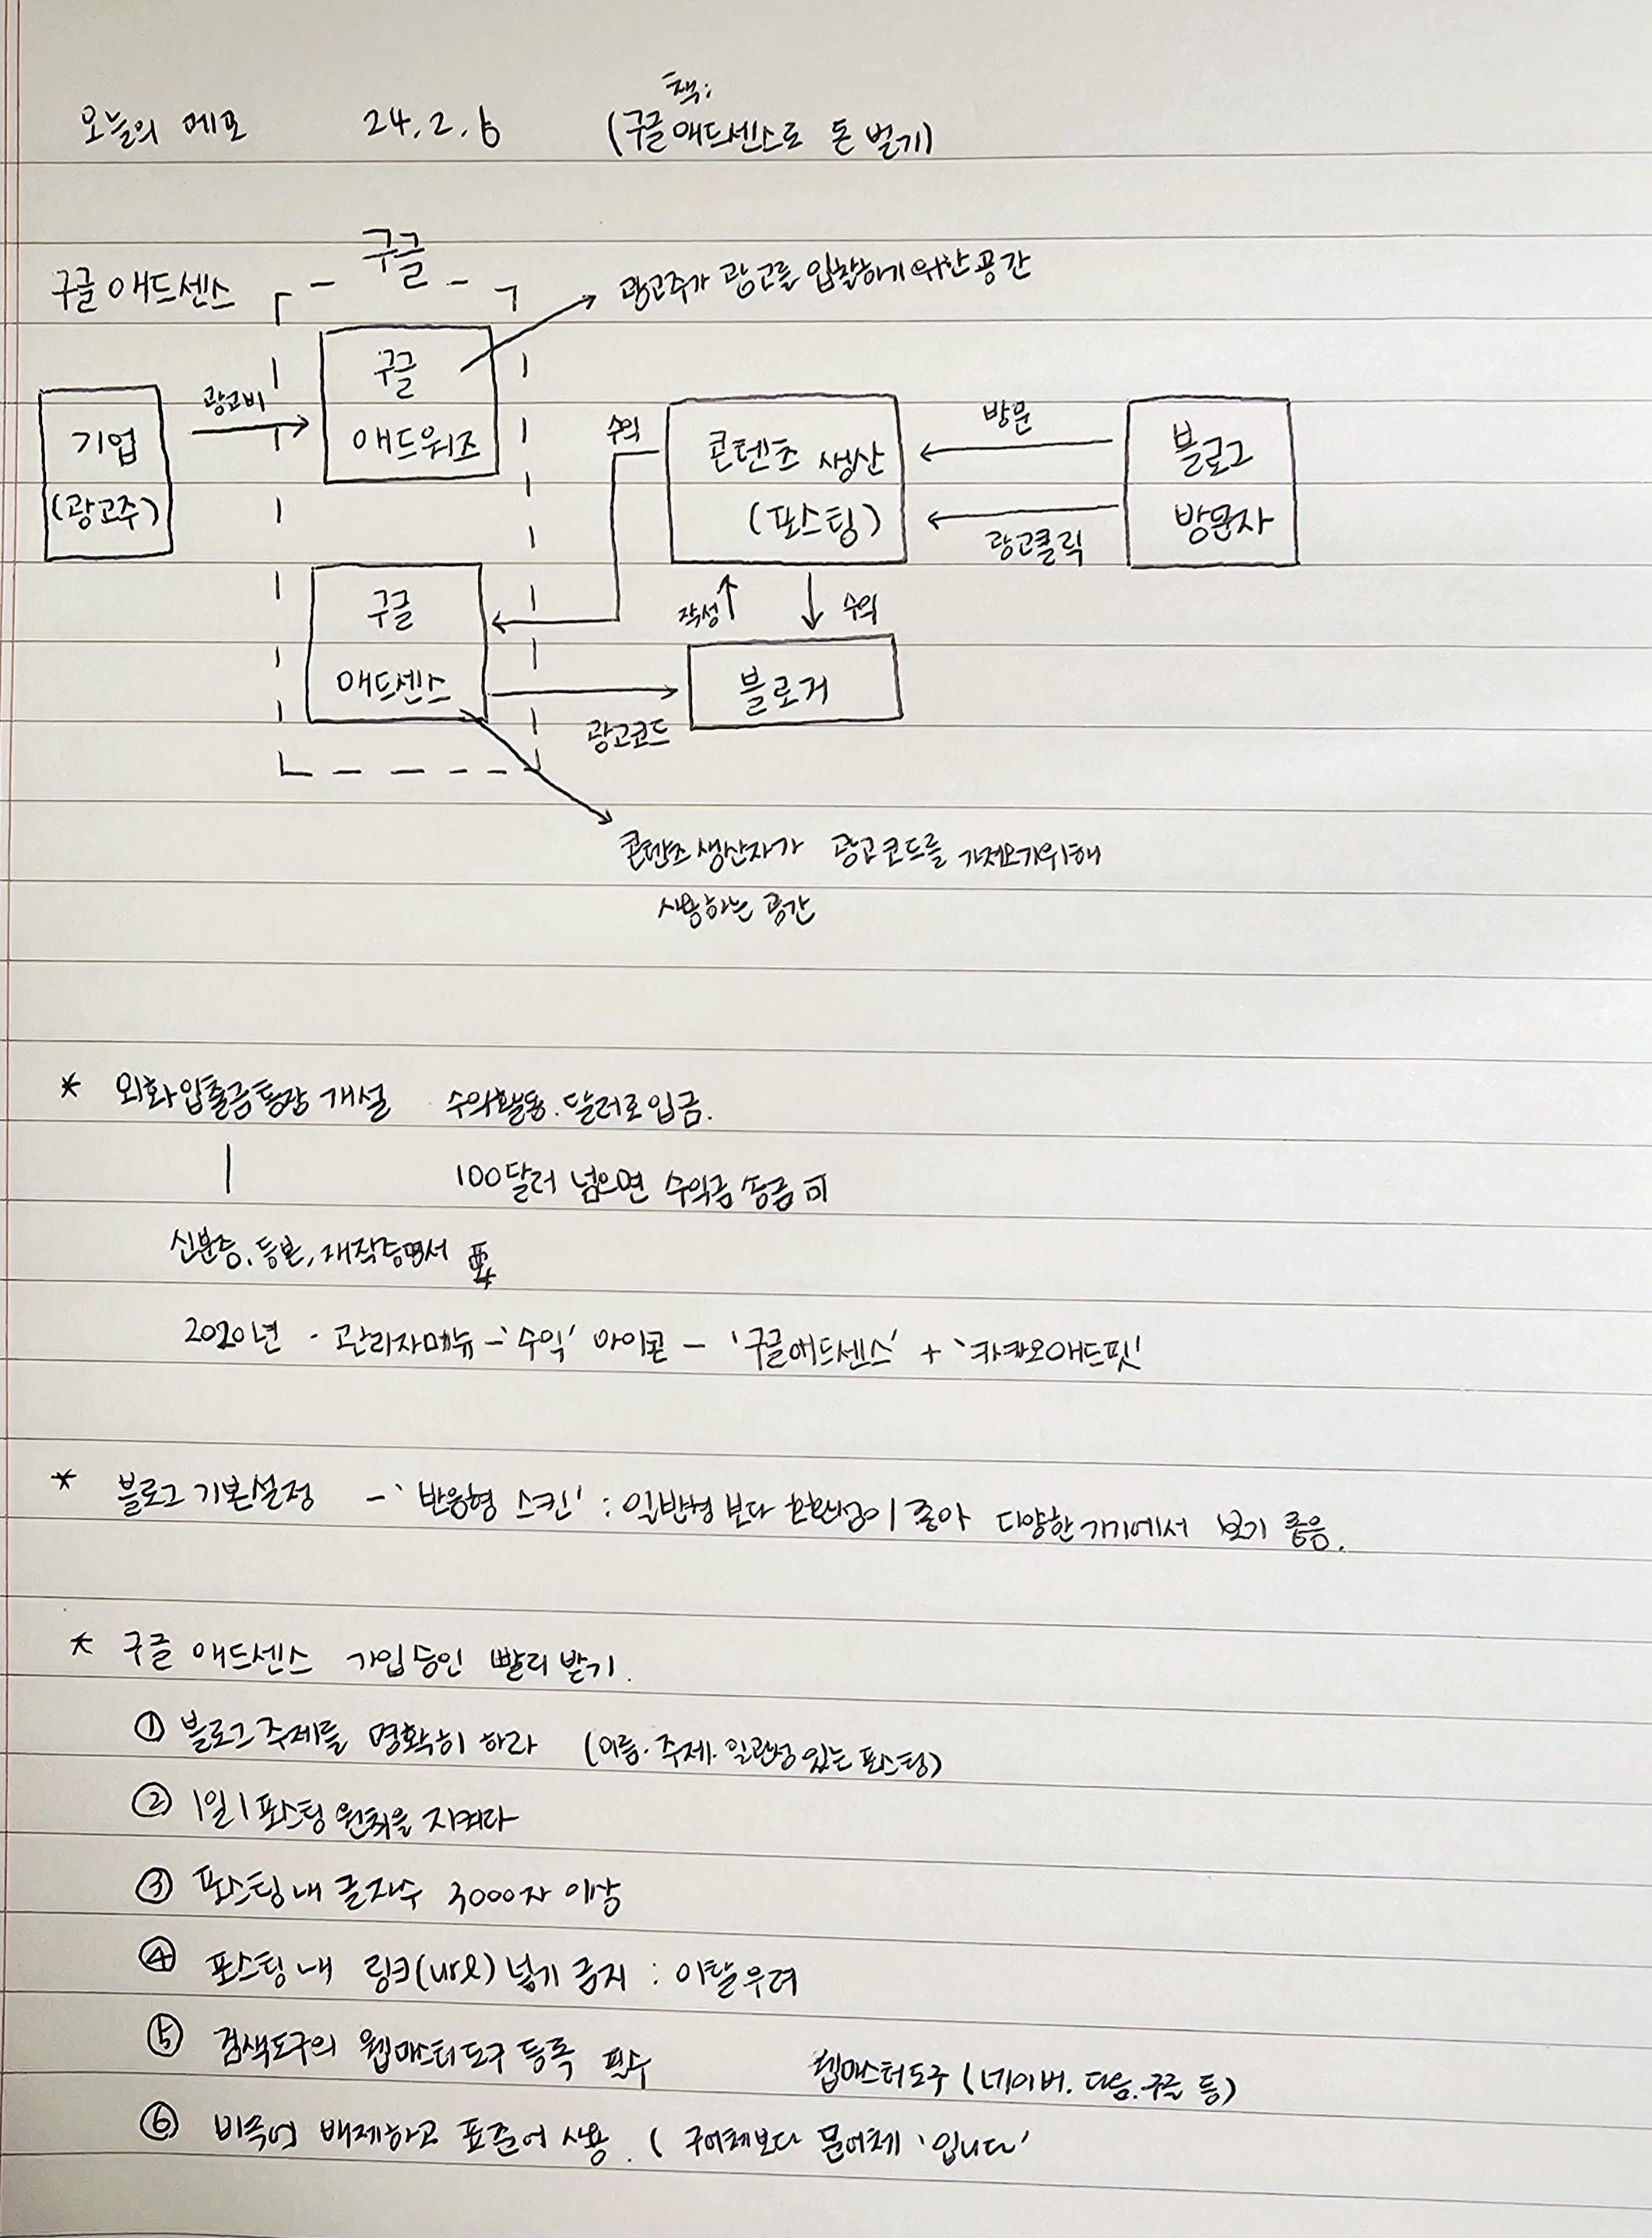 책:
오늘의 메모 24.2.6 (구글 애드센스로 돈 벌기)
구글
구글 애드센스
광고주가 광고를 입찰하기 위한 공간
구글
애드워즈
광고비
기업
(광고주)
수익
콘텐츠 생산
(포스팅)
방문
광고클릭
블로그
방문자
구글
애드센스
작성
수익
블로거
광고코드
콘텐츠 생산자가 광고코드를 가져오기위해
사용하는 공간
* 외화입출금통장 개설 수익활동. 달러로 입금.
100달러 넘으면 수익금 송금 可
신분증, 등본, 재직증명서 要
2020년 - 관리자메뉴 - '수익' 아이콘 - '구글애드센스' + '카카오애드핏'
* 블로그 기본설정 - '반응형 스킨' : 일반형 보다 호환성이 좋아 다양한 기기에서 보기 좋음.
* 구글 애드센스 가입승인 빨리 받기.
① 블로그 주제를 명확히 하라 (이름. 주제. 일관성 있는 포스팅)
② 1일 1포스팅 원칙을 지켜라
③ 포스팅 내 글자수 3000자 이상
④ 포스팅 내 링크(url) 넣기 금지 : 이탈우려
⑤ 검색도구의 웹마스터도구 등록 필수 웹마스터도구 (네이버. 다음. 구글 등)
⑥ 비속어 배제하고 표준어 사용. ( 구어체보다 문어체 '입니다'